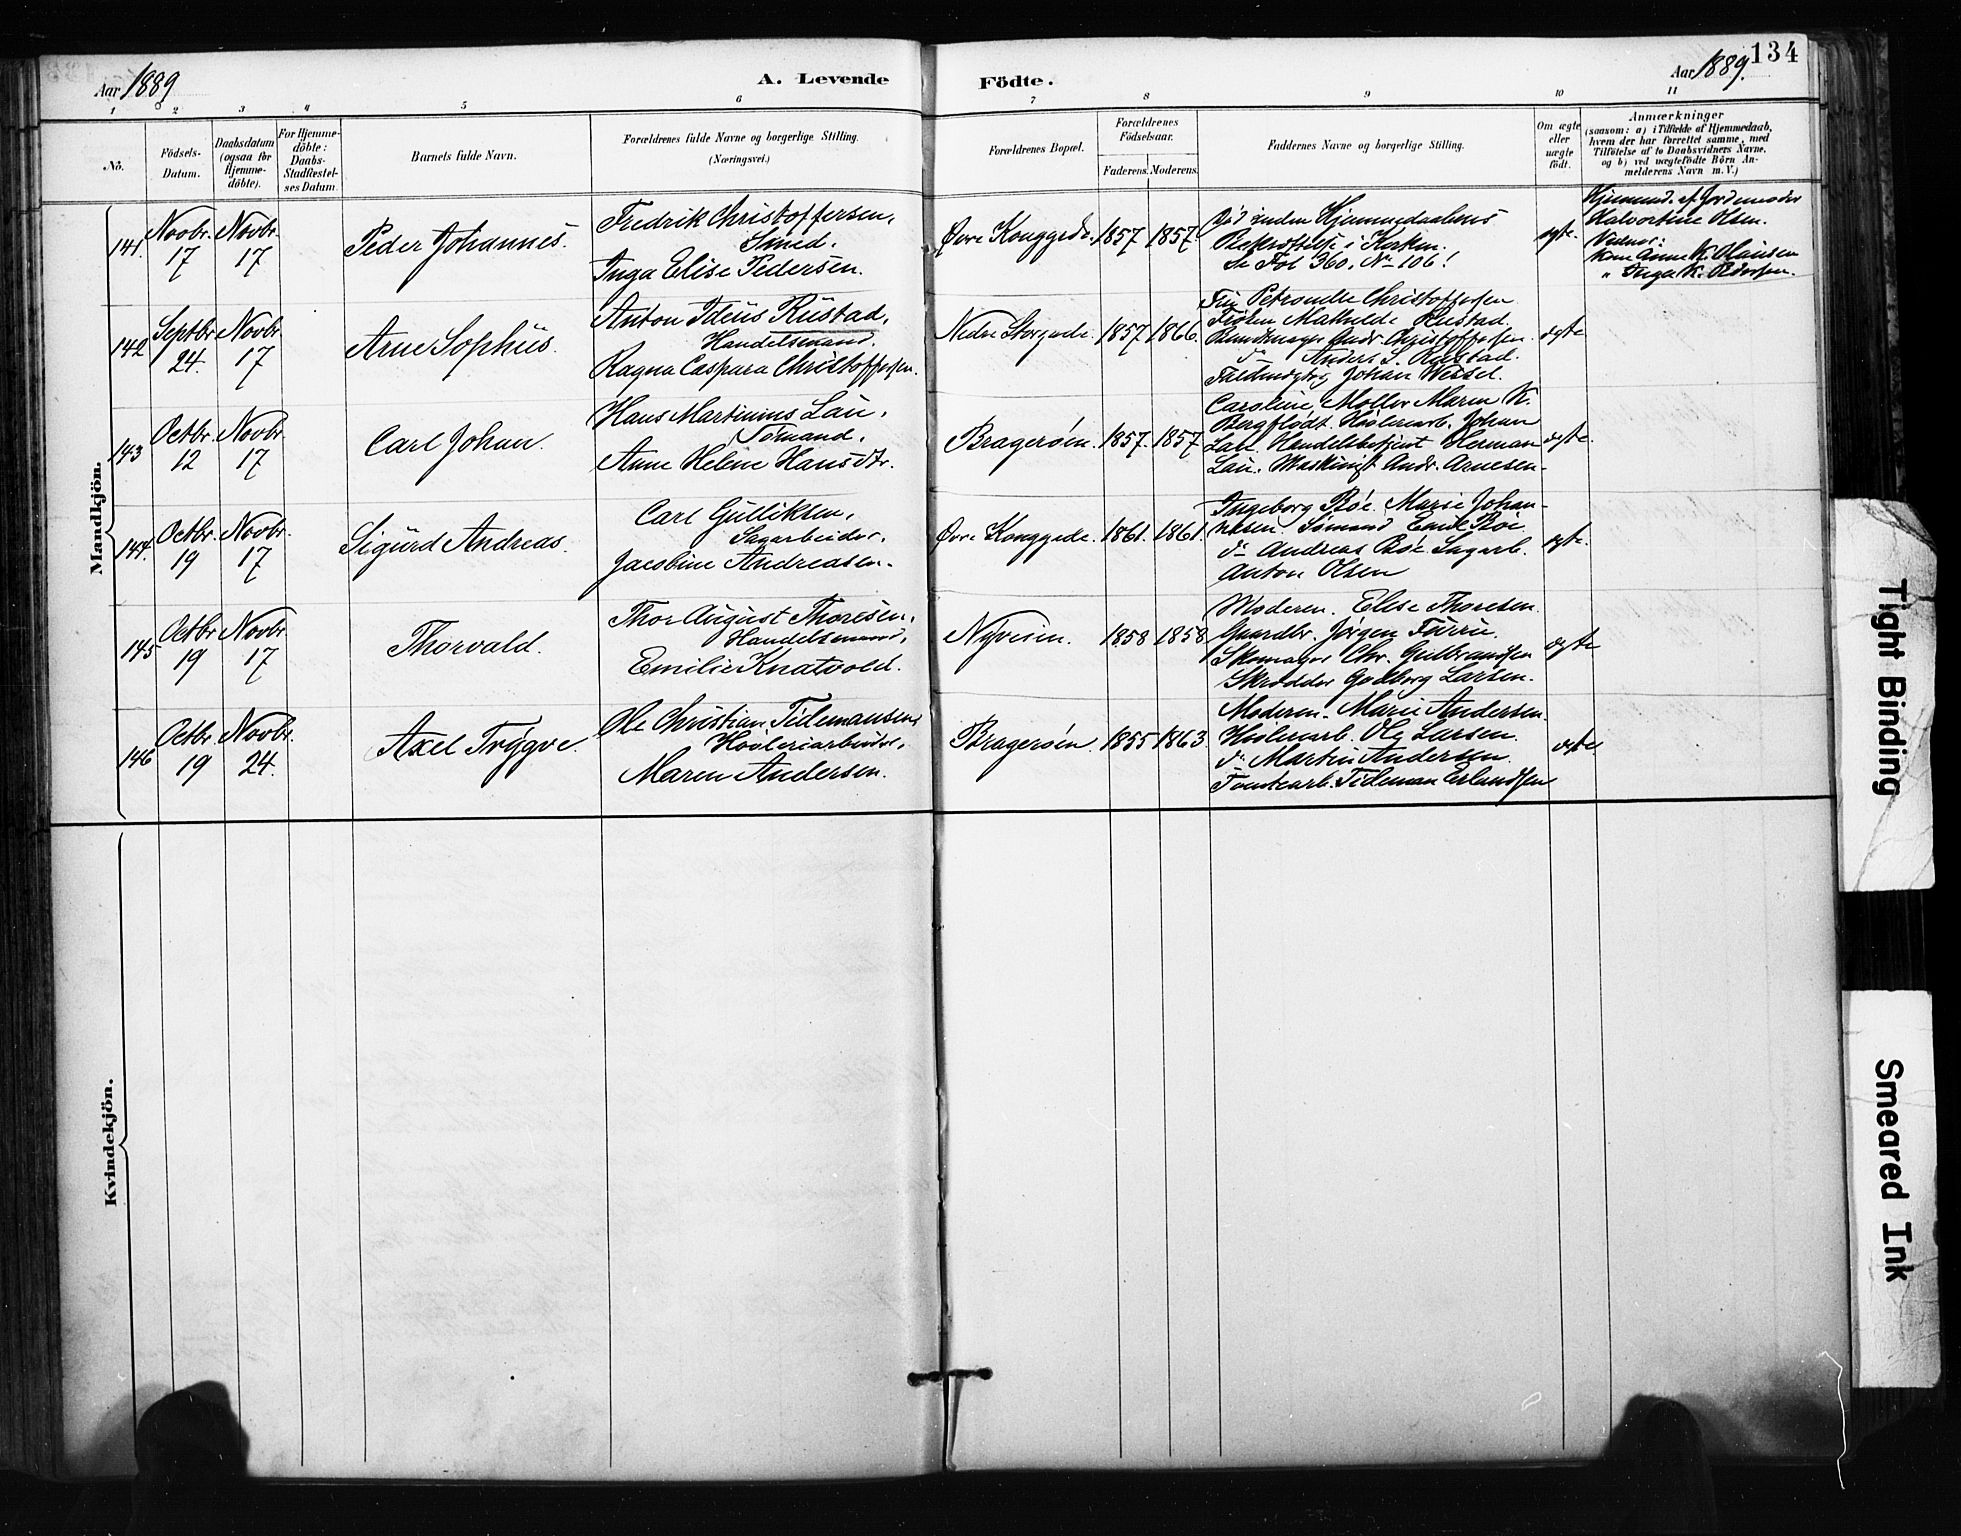 134
Aar 1889
A. Levende Födte.
Aar 1889.
1 2 3 4 5 6 7 8 9 10 11
No.
Födsels-Datum.
Daabsdatum (ogsaa for Hjemme-döbte).
For Hjemme-döbte: Daabs-Stadfæstel-ses Datum.
Barnets fulde Navn.
Forældrenes fulde Navne og borgerlige Stilling. (Næringsvei.)
Forældrenes Bopæl.
Forældrenes Födselsaar.
Faderens. Moderens.
Faddernes Navne og borgerlige Stilling.
Om ægte eller uægte födt.
Anmærkninger
(saasom: a) i Tilfælde af Hjemmedaab,
hvem der har forrettet samme, med
Tilföielse af to Daabsvidners Navne,
og b) ved uægtefödte Börn An-
melderens Navn m. V.)
Mandkjön.
141.
Novbr. 17
Novbr. 17
Peder Johannes.
Fredrik Christoffersen,
Smed.
Inga Elise Pedersen.
Øvre Konggade.
1857. 1857.
Død inden Hjemmedaabens
Bekræftelse i Kirken.
Se Fol 360. No 106!
ægte.
Hjemmed. af Jordemoder
Halvorline Olsen.
Vidner:
Kone Anne K. Hansen
" Inga K. Pedersen.
142
Septbr. 24.
Novbr. 17
Arne Sophus.
Anton Ideus Rustad,
Handelsmand.
Ragna Caspara Christoffersen.
Nedre Storgade.
1857. 1866.
Fru Petronelle Christoffersen
Frøken Mathilde Rustad.
Bundtmager Andr. Christoffersen.
do Anders S. Rustad.
Johan Wessel.
ægte
143
Octbr. 12
Novbr. 17
Carl Johan.
Hans Martinius Lau,
Sømand.
Anne Helene Hansdtr.
Bragerøen.
1857. 1857
Caroline Møller Maren K.
Bergflødt. Høvleriarb. Johan
Lau. Handelsbetjent Herman
Lau. Maskinist Andr. Arnesen.
ægte.
144.
Octbr. 19
Novbr. 17
Sigurd Andreas.
Carl Gulliksen,
Sagarbeider.
Jacobine Andreasen.
Øvre Konggade.
1861. 1861.
Ingeborg Bøe. Marie Johan-
nesen Sømand Emil Bøe
do Andreas Bøe Sagarb.
Anton Olsen
ægte.
145
Octbr 19
Novbr. 17
Thorvald.
Thor August Thoresen,
Handelsmand,
Emilie Knatvold.
Nyveien.
1858 1858
Moderen. Elise Thoresen.
Gaardbr. Jørgen Furru.
Skomager Chr. Gulbrandsen
Skrædder Gudborg Larsen.
ægte
146
Octbr. 19
Novbr. 24.
Axel Tryggve.
Ole Christian Tidemansen,
Høvleriarbeider,
Maren Andersen.
Bragerøen.
1855 1863.
Moderen. Marie Andersen.
Høvleriarb. Ole Larsen.
do Martin Andersen.
Tomtearb. Tideman Erlandsen
ægte
Kvindekjön.
Tight Binding
Smeared Ink